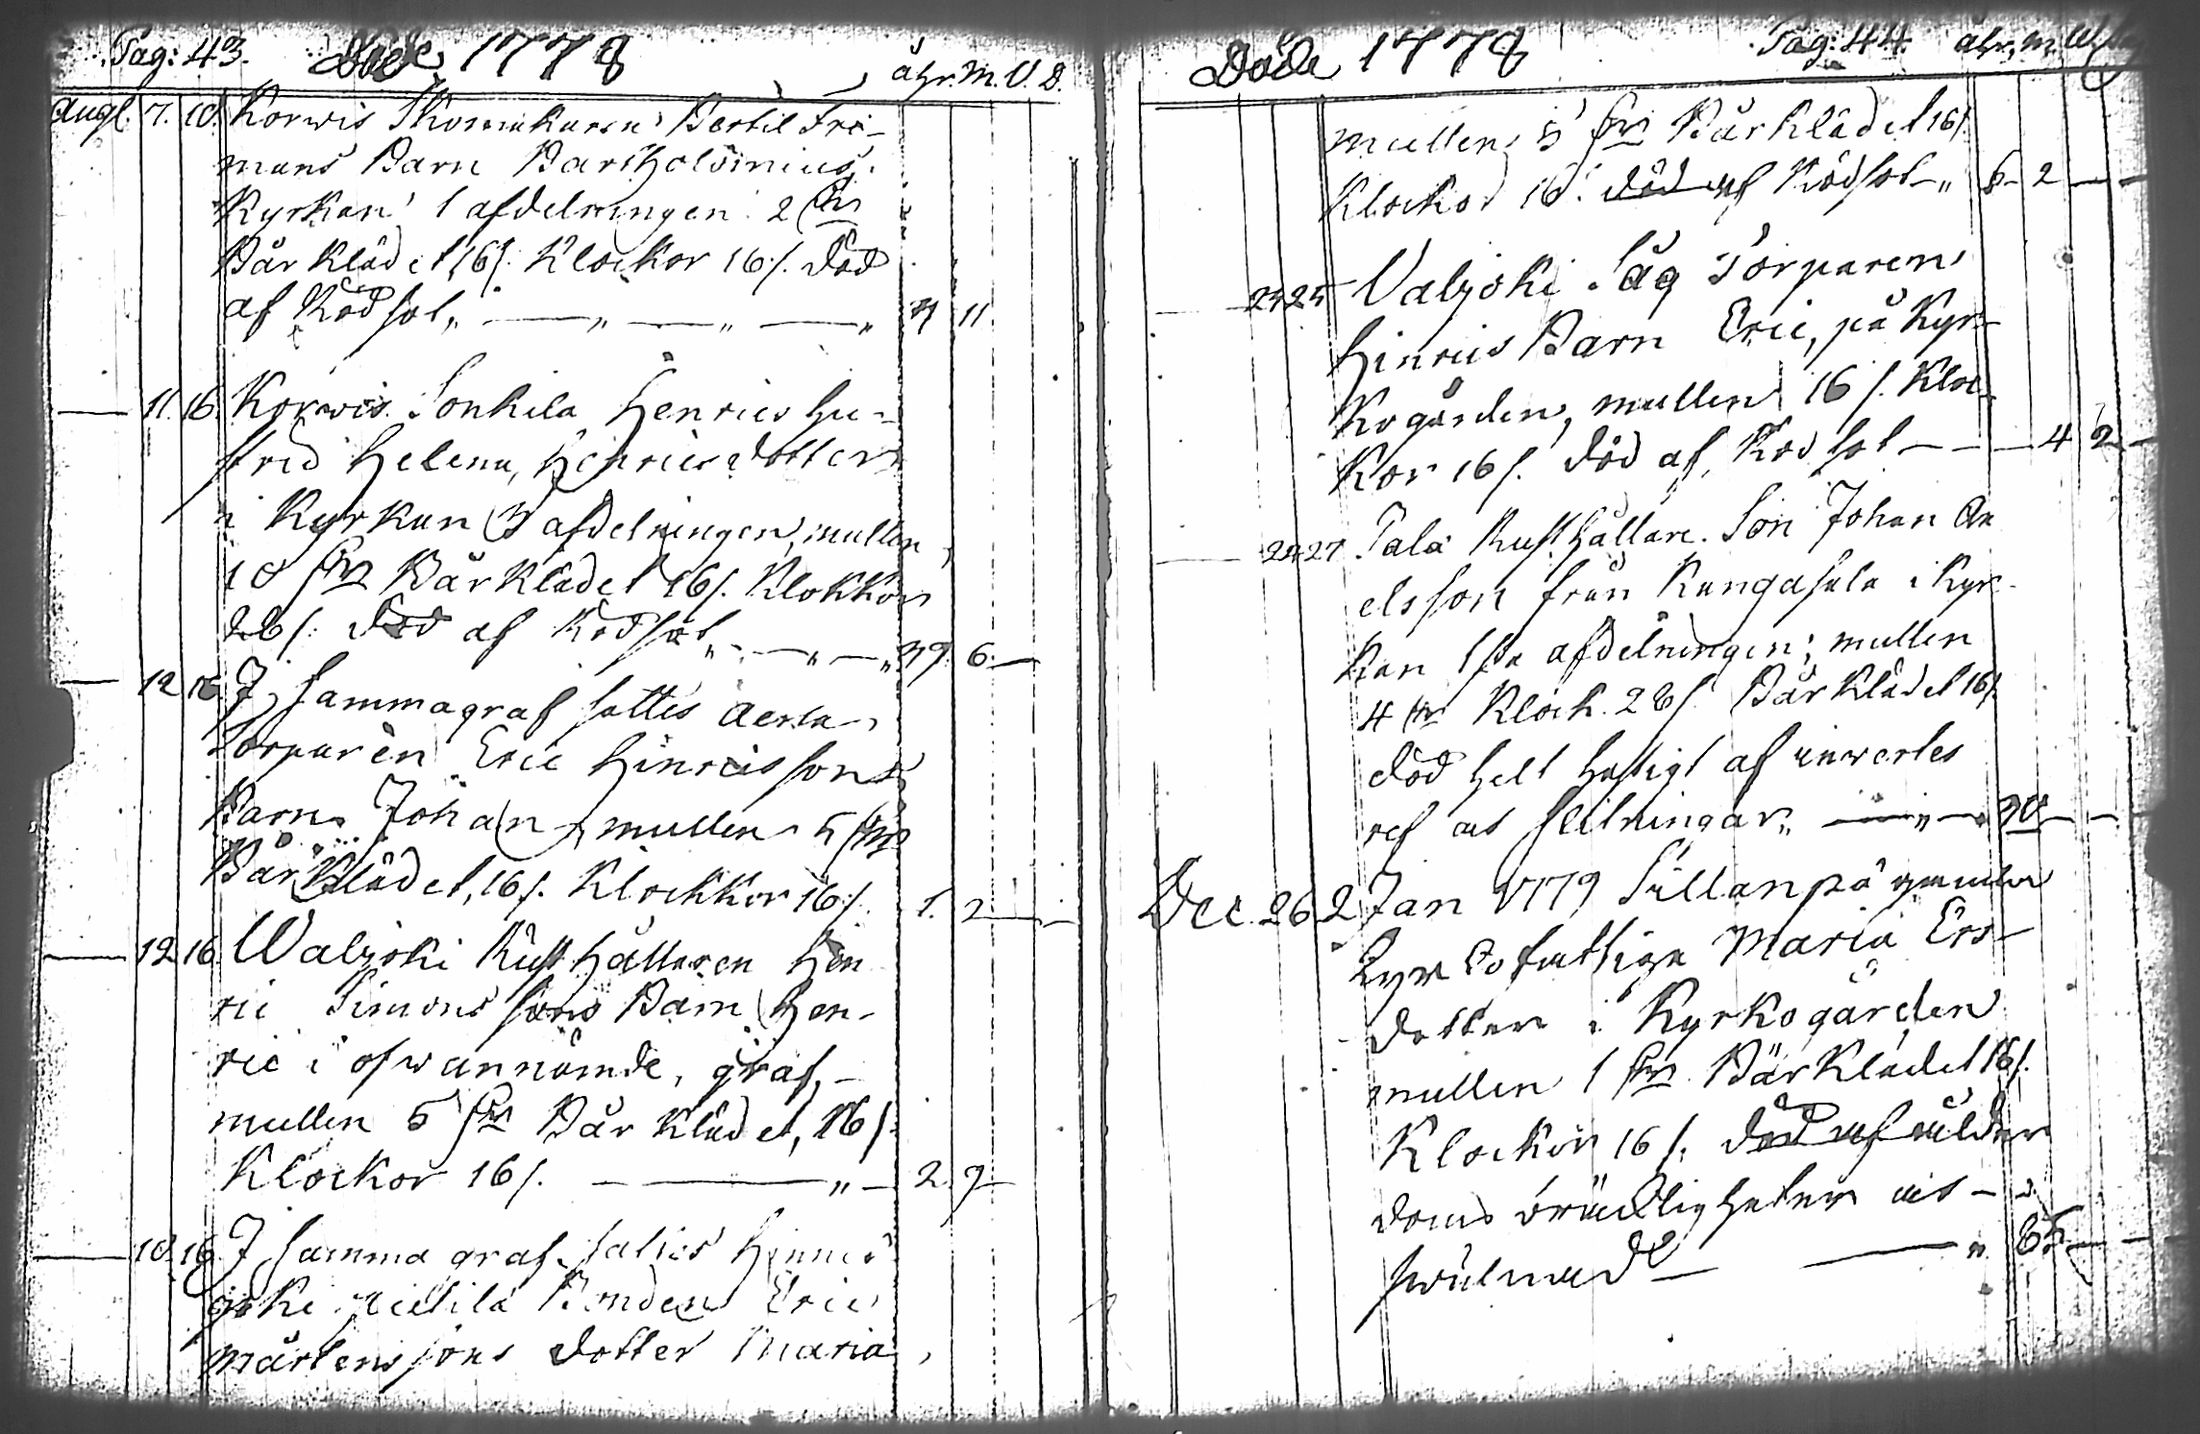 Pag: 43. Döde 1778 åhr. M. V. D.
Augl. 7. 10. Korwis Skomakaren Bertil Frö-
mans Barn Bartholomius.
Kyrkan 1 afdelningen 2
Bår Klädet 16/. Klockor 16/. död
af Rödsot „ — „ — „ — „ 4 11
— 11. 16. Korwis Sonkila Henrics hu-
stru Helena, Henricsdotter
i Kyrkan 3 afdelningen, mullen
10 Bårklädet 16/. Klokkor
26/. död af Rödsot „ — „ — „ 39 6 —
— 12 16. I samma graf sattes
Torparen Eric Hinricssons
Barn Johan, mullen 5
Bår Klädet, 16/. Klockkor 16/. 1. 2 —
— 12 16 Walzoki Rusthållaren Hen
ric Simonssons Barn Hen-
ric i ofwannämde, graf, —
mullen 5 Bår klädet, 16/
Klockor 16/. — „ — 2. 7 —
— 16 I samma graf
Bonden Eric
Mårtenssons dotter Maria,
Döde 1778 Pag: 44. åhr. M.
mullen 5 Bår Klädet 16/.
Klockor 16. död af Rödsot — „ 6 - 2 —
— 25 Walzoki Torparen
Hinrics Barn Eric, på Kyr-
kogården, mullen 16/. Kloc-
kor 16/. död af Rödsot — 4 2 —
— 27 Pala Rusthållare Son Johan
elsson från Kangasala i Kyr-
kan 1sta afdelningen; mullen
4 Klock. 26/. Bår Klädet 16/.
död helt hastigt af
slitningar „ — „ —
Dec. 26 2 Jan 1779 Sillanpä gamla
fattiga Maria Ers-
dotter i Kyrkogården
mullen 1 Bår Klädet 16/.
Klockor 16/. död af ålder
doms bräckligheter
— „